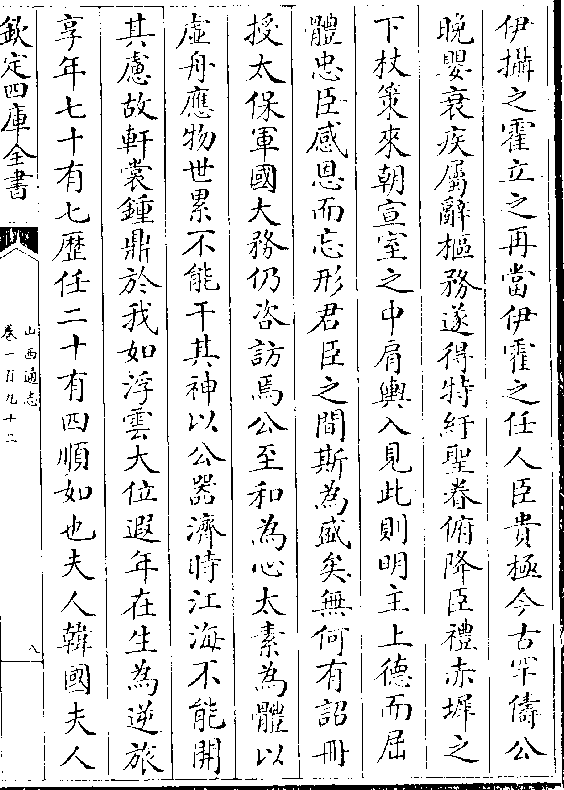 伊攝之霍立之再當伊霍之任人臣貴極今古罕儔公
晚嬰衰疾屬辭樞務遂得特紆聖眷俯降臣禮赤墀之
下杖策來朝宣室之中肩輿入見此則明主上德而屈
體忠臣感恩而忘形君臣之間斯為盛矣無何有詔冊
授太保軍國大務仍咨訪焉公至和為心太素為體以
虛舟應物世累不能干其神以公器濟時江海不能開
其慮故軒裳鍾鼎於我如浮雲大位遐年在生為逆旅
享年七十有七歷任二十有四順如也夫人韓國夫人
欽定四庫全書
山西通志
卷一百九十二
八